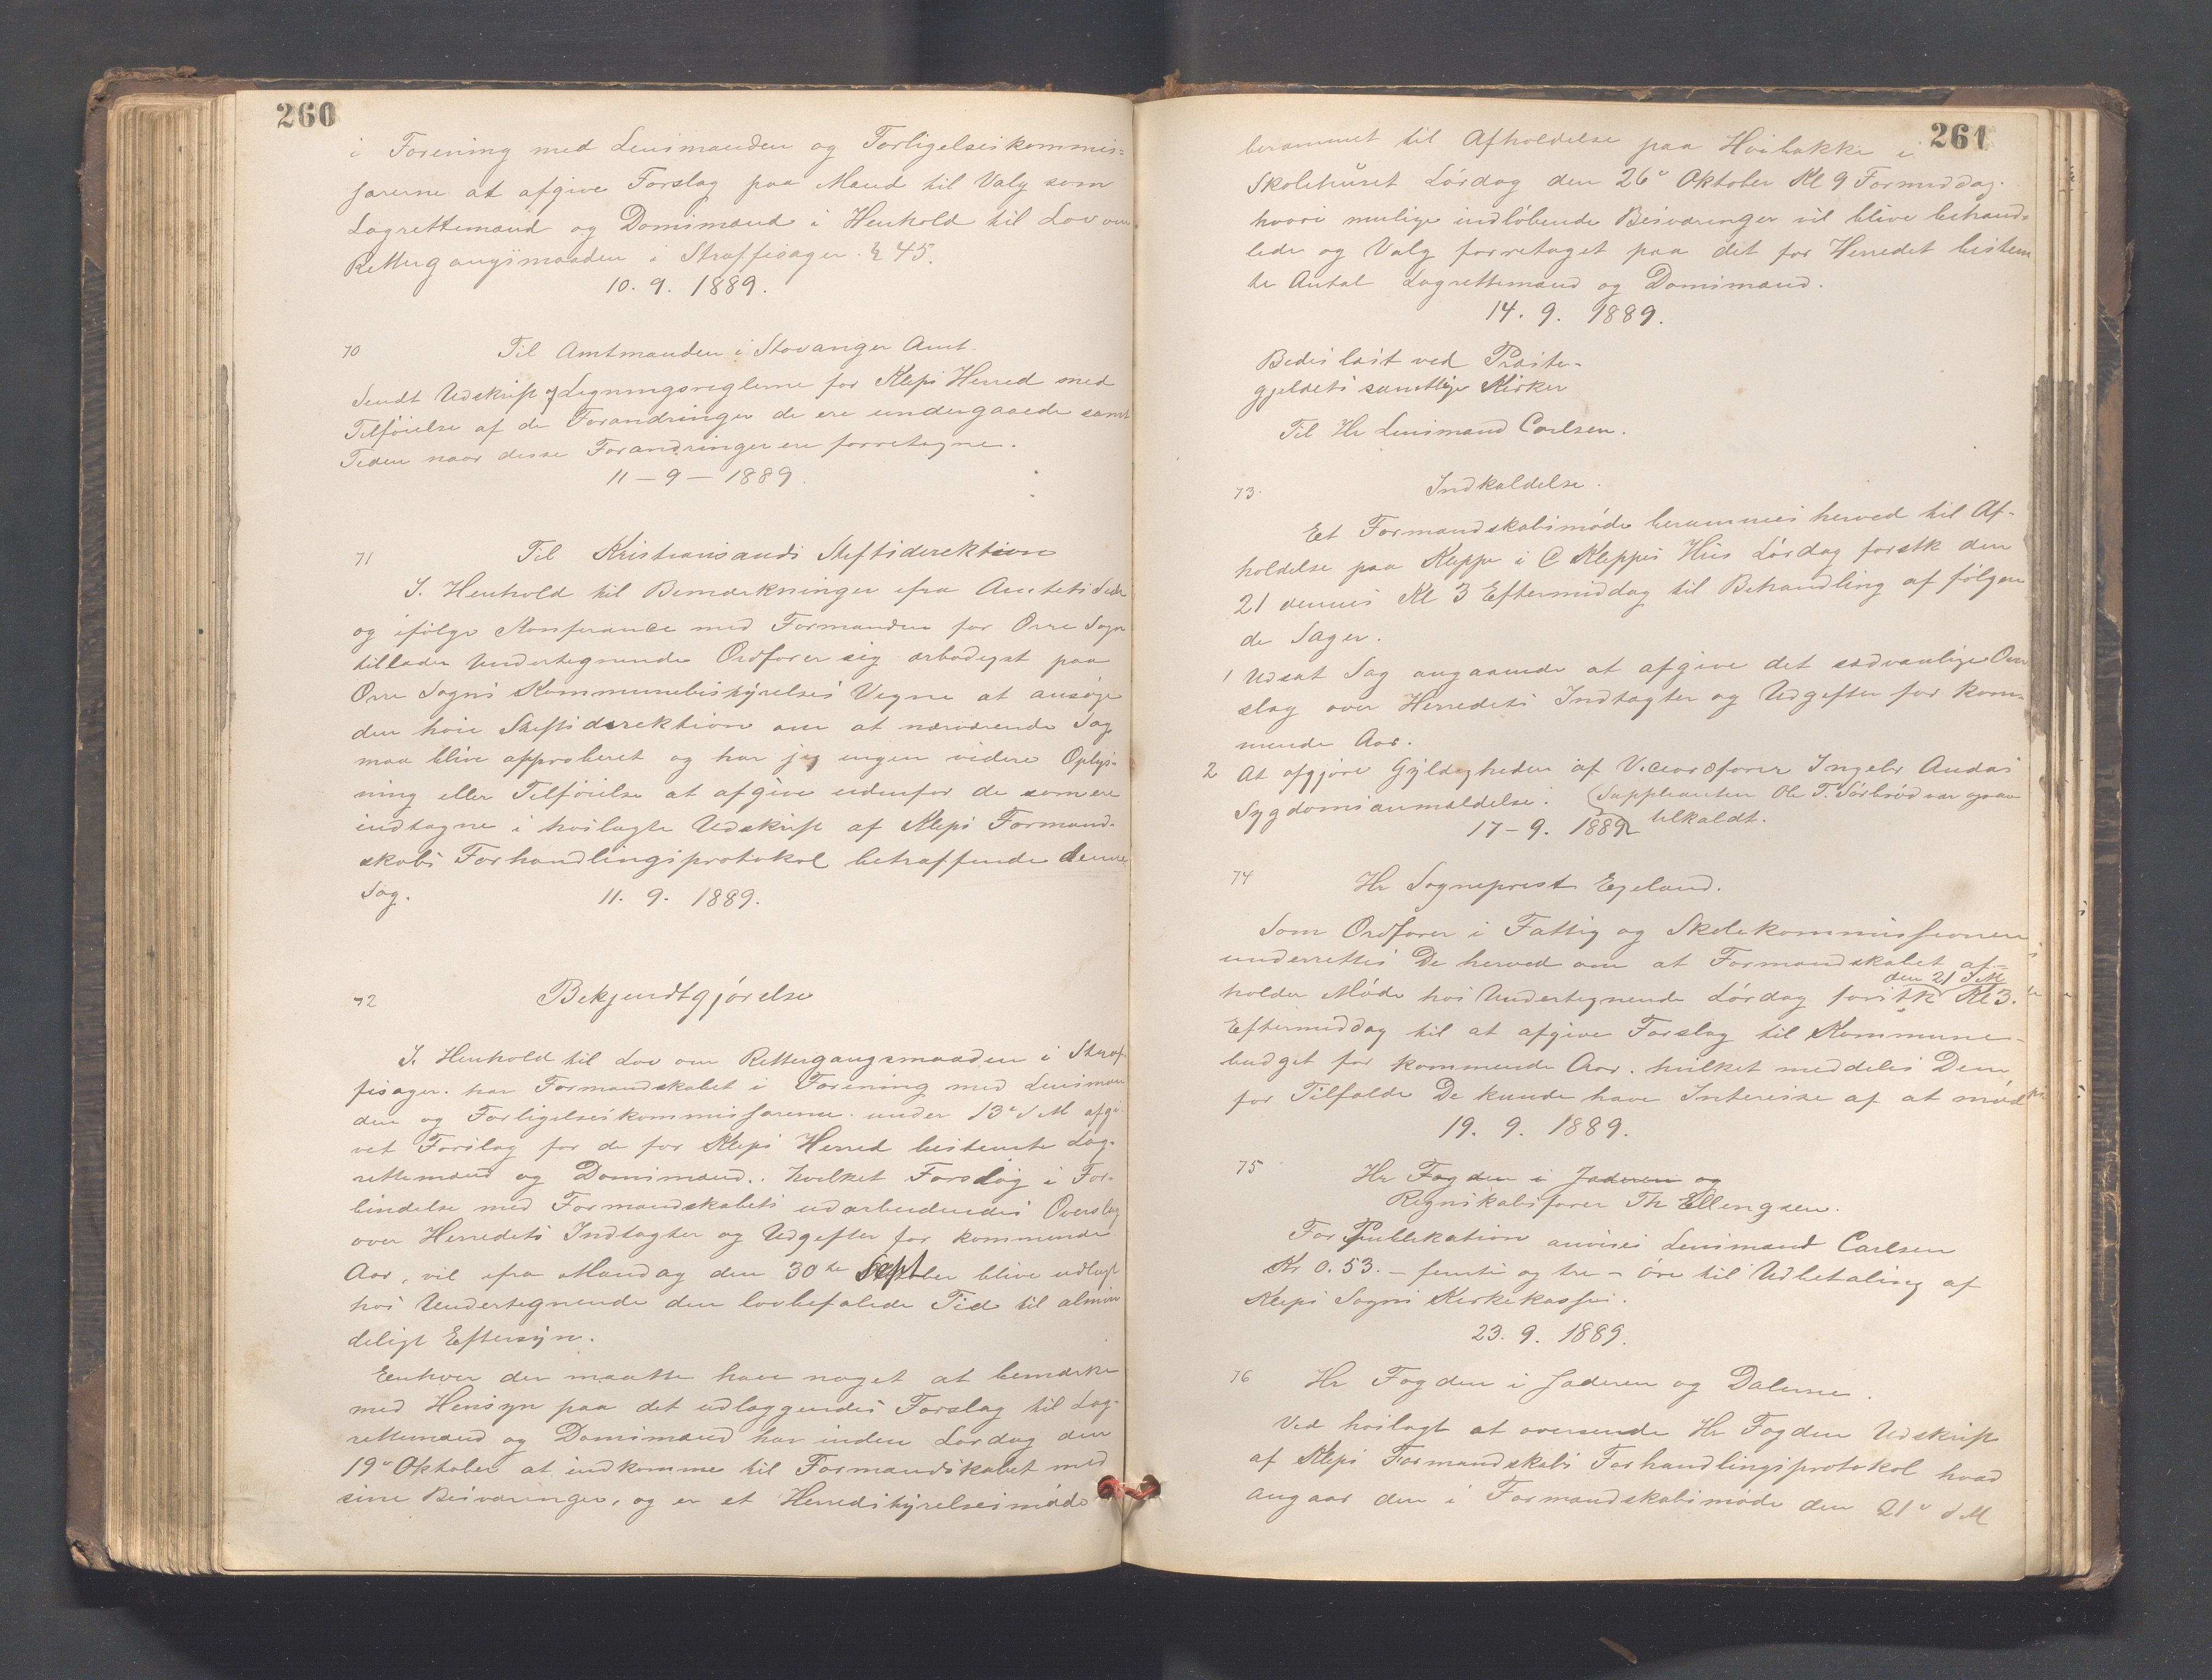 260
i Forening med Lensmanden og Forligelseskommis-
særerne at afgive Forslag paa Mænd til Valg som
Lagrettemænd og Domsmænd i Henhold til Lov om
Rettergangsmaaden i Straffesager § 45.
10. 9. 1889.
70 Til Amtmanden i Stavanger Amt.
Sendt Udskrift af Ligningsreglerne for Kleps Herred med
Tilføielse af de Forandringer de ere undergaaede samt
Tiden naar disse Forandringer ere foretagne.
11 - 9 - 1889.
71 Til Kristiansands Stiftsdirektion
I Henhold til Bemærkninger fra Amtets Side
og ifølge Konferance med Formanden for Orre Sogn
tillader Undertegnende Ordfører sig ærbødigst paa
Orre Sogns Kommunebestyrelses Vegne at ansøge
den høie Stiftsdirektion om at nærværende Sag
maa blive approberet og har jeg ingen videre Oplys-
ning eller Tilføielse at afgive udenfor de som ere
indtagne i hoslagte Udskrift af Kleps Formand-
skabs Forhandlingsprotokol betræffende denne
Sag. 11. 9. 1889.
72 Bekjendtgjørelse
I Henhold til Lov om Rettergangsmaaden i Straf-
fesager. har Formandskabet i Forening med Lensman
den og Forligelseskommissærerne under 13de d M afgi-
vet Forslag for de for Kleps Herred bestemte Lag-
rettemænd og Domsmænd.. hvilket Forslag i For-
bindelse med Formandskabets udarbeidendes Overslag
over Herredets Indtægter og Udgifter for kommende
Aar, vil fra Mandag den 30te Sept blive udlagt
hos Undertegnende den lovbefalede Tid til almin
deligt Eftersyn.
Enhver der maatte have noget at bemærke
med Hensyn paa det udlæggendes Forslag til Lag-
rettemænd og Domsmænd har inden Lørdag den
19de Oktober at indkomme til Formandskabet med
sine Besværinger, og er et Herredstyrelsesmøde
261
berammet til Afholdelse paa Hoibakke i
Skolehuset Lørdag den 26de Oktober Kl 9 Formiddag.
hvori mulige indløbende Besværinger vil blive behand-
lede og Valg forretaget paa det for Herredet bestem
te Antal Lagrettemænd og Domsmænd.
14. 9. 1889.
Bedes læst ved Præste-
gjeldets samtlige Kirker
Til Hr Lensmand Carlsen.
73. Indkaldelse.
Et Formandskabsmøde berammes herved til Af-
holdelse paa Kleppe i C Kleppes Hus Lørdag førstk den
21 dennes Kl 3 Eftermiddag til Behandling af følgen
de Sager.
1 Udsat Sag angaaende at afgive det sædvanlige Over
slag over Herredets Indtægter og Udgifter for kom-
mende Aar.
2 At afgjøre Gyldigheden af Viceordfører Ingebr Andas
Sygdomsanmeldelse. (Suppleanten Ole T. Sørbrød var ogsaa
tilkaldt.
17 - 9. 1889
74 Hr Sogneprest Egeland.
Som Ordfører i Fattig og Skolekommissionen
underrettes De herved om at Formandskabet af-
holder Møde hos Undertegnende Lørdag førstk den 21 d M. Kl 3.
Eftermiddag til at afgive Forslag til Kommune-
budget for kommende Aar. hvilket meddeles Dem,
for Tilfælde De kunde have Interesse af at mød
19. 9. 1889.
75 Hr Fogden i Jæderen og
Regnskabsfører Th Ellingsen.
For Publikation anvises Lensmand Carlsen
Kr 0.53. - femti og tre - øre til Udbetaling af
Kleps Sogns Kirkekasse.
23. 9. 1889.
76 Hr Fogden i Jæderen og Dalerne.
Ved hoslagt at oversende Hr Fogden Udskrift
af Kleps Formandskabs Forhandlingsprotokol hvad
angaar den i Formandskabsmøde den 21de d M